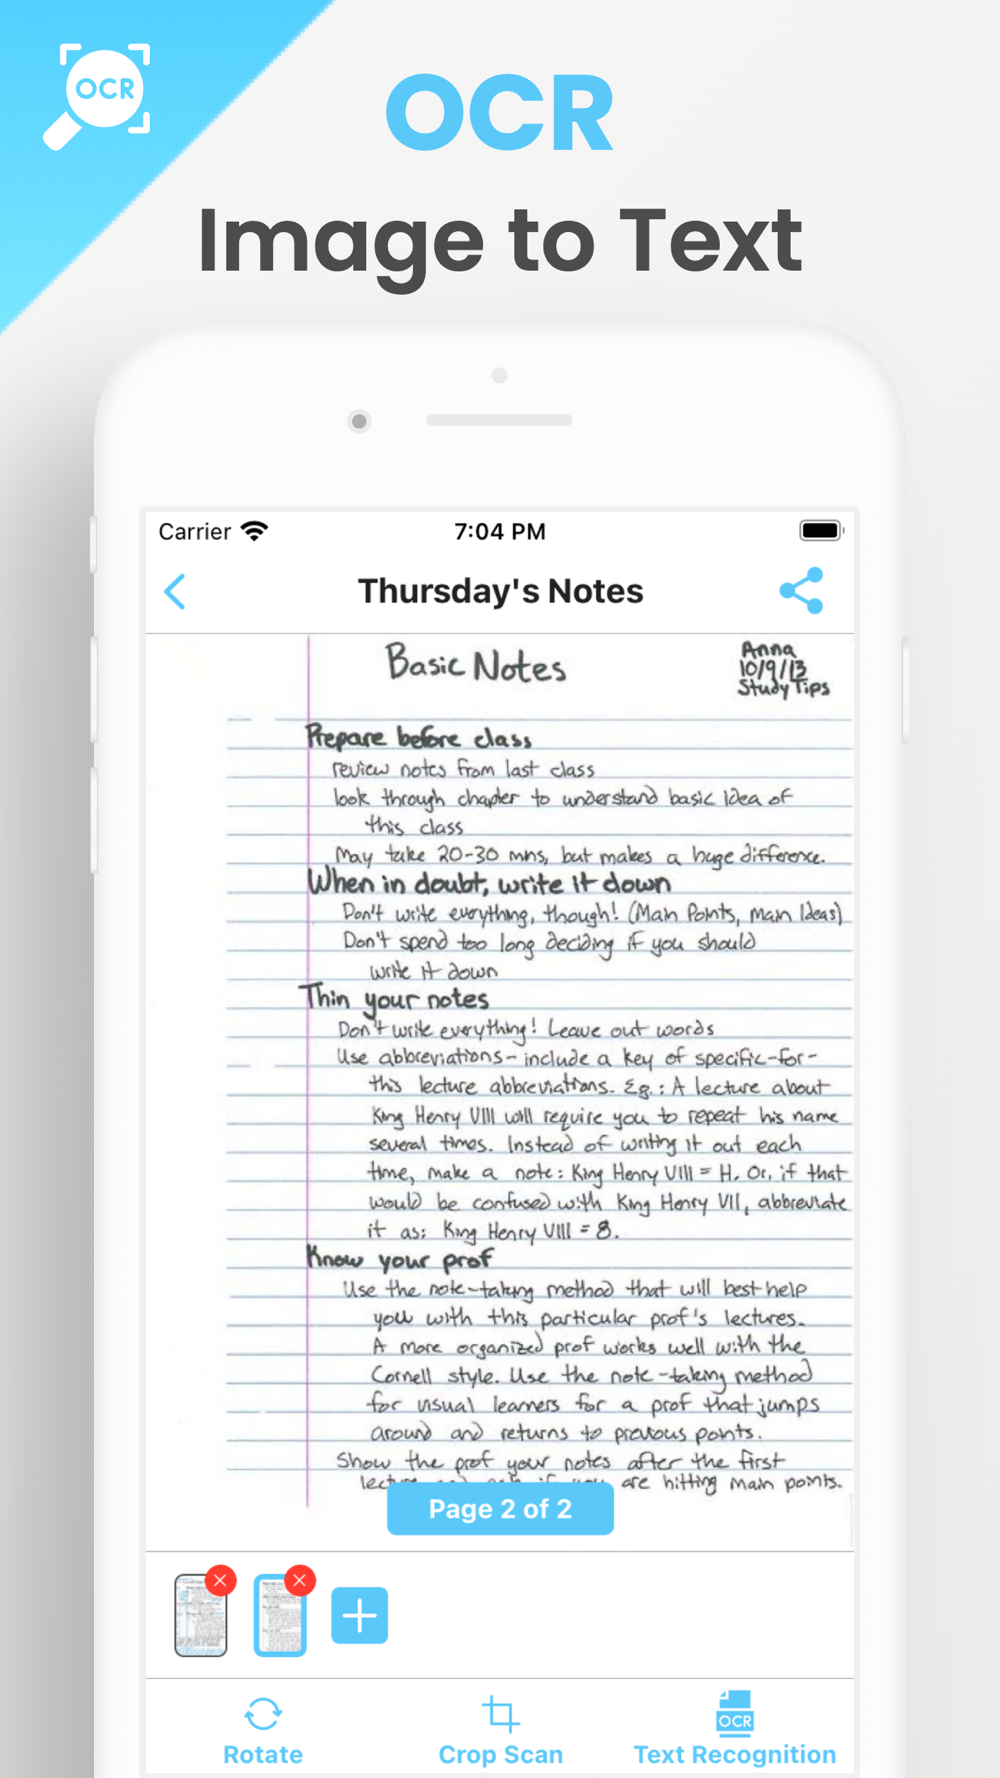 OCR
OCR
Image to Text
Carrier
7:04 PM
Thursday's Notes
Basic Notes
Anna
10/9/13
Study Tips
Prepare before class
review notes from last class
look through chapter to understand basic idea of
this class
May take 20-30 mns, but makes a huge difference.
When in doubt, write it down
Don't write everything, though! (Main Points, Main Ideas)
Don't spend too long deciding if you should
write it down
Thin your notes
Don't write everything! Leave out words
Use abbreviations - include a key of specific-for-
this lecture abbreviations. Eg.: A lecture about
King Henry VIII will require you to repeat his name
several times. Instead of writing it out each
time, make a note: King Henry VIII = H. Or, if that
would be confused with King Henry VII, abbreviate
it as: King Henry VIII = 8.
Know your prof
Use the note-taking method that will best help
you with this particular prof's lectures.
A more organized prof works well with the
Cornell style. Use the note-taking method
for visual learners for a prof that jumps
around and returns to previous points.
Show the prof your notes after the first
are hitting main points.
Page 2 of 2
Rotate
Crop Scan
OCR
Text Recognition